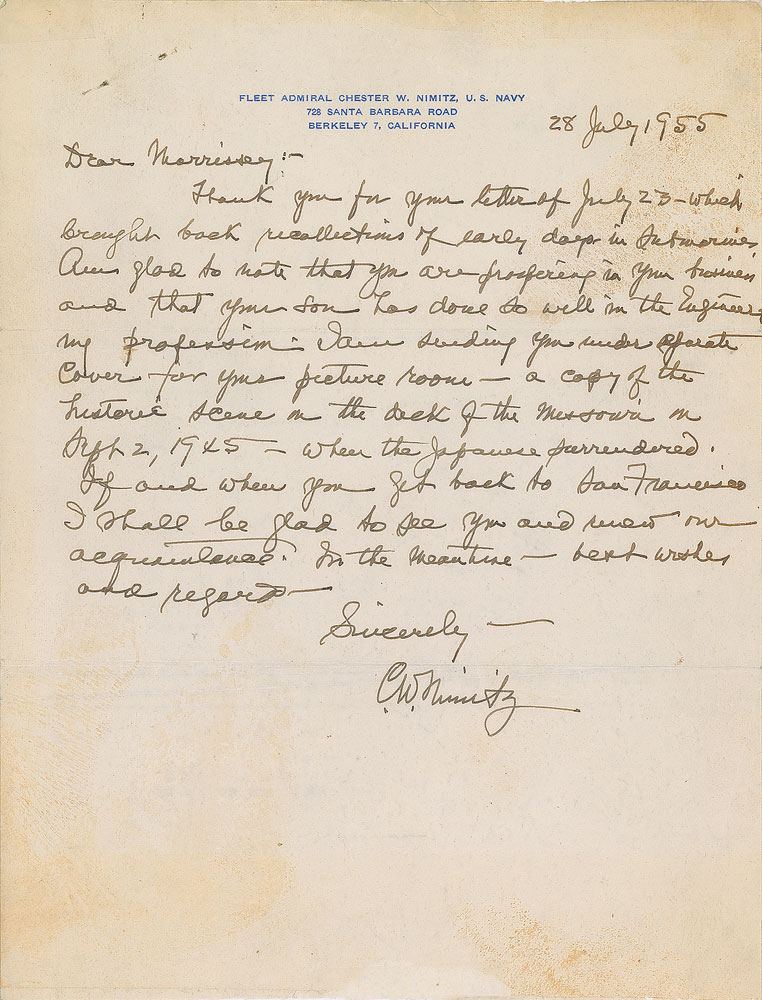 FLEET ADMIRAL CHESTER W. NIMITZ, U. S. NAVY
728 SANTA BARBARA ROAD
BERKELEY 7, CALIFORNIA
28 July 1955
Dear Morrissey:-
Thank you for your letter of July 23 - which
brought back recollections of early days in Submarines
Am glad to note that you are prospering in your business
and that your son has done so well in the Engineer-
ing profession. I am sending you under separate
Cover - for your picture room - a copy of the
historic scene on the deck of the Missouri on
Sept 2, 1945 - when the Japanese surrendered.
If and when you get back to San Francisco
I shall be glad to see you and renew our
acquaintance. In the meantime - best wishes
and regards -
Sincerely -
C.W. Nimitz